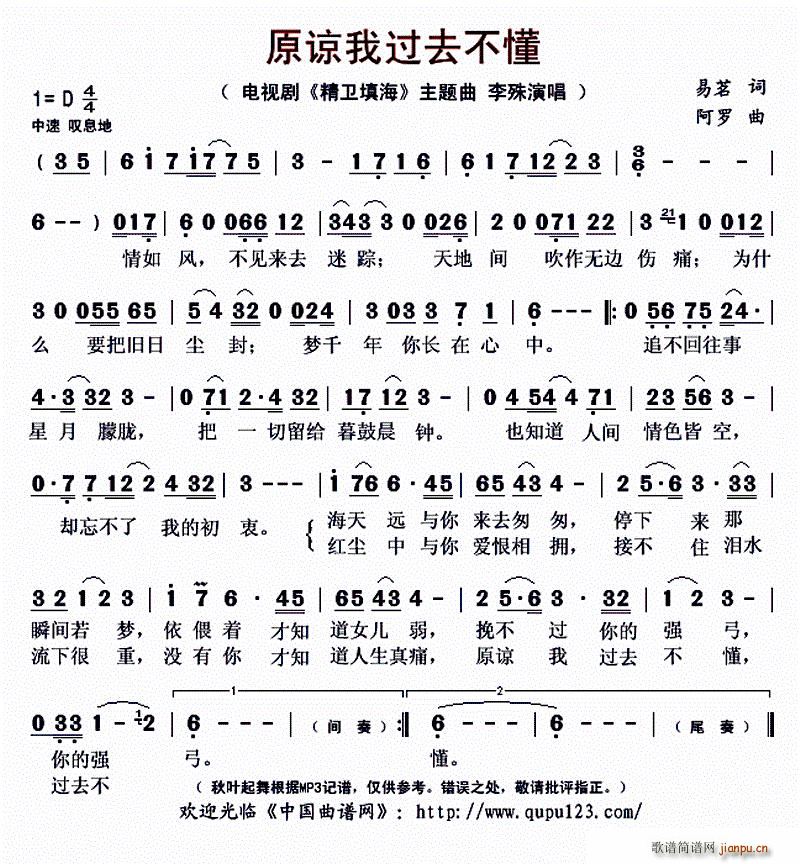 原谅我过去不懂
1=D 4/4
（ 电视剧《精卫填海》主题曲 李殊演唱 ）
易茗 词
中速 叹息地
阿罗 曲
( 3 5 | 6 i 7 i 7 7 5 | 3 - 1 7 1 6 | 6 1 7 1 2 2 3 | 3/6 - - - |
6 - - ) 0 1 7 | 6 0 0 6 6 1 2 | 3 4 3 3 0 0 2 6 | 2 0 0 7 1 2 2 | 3 21 1 0 0 1 2 |
情如 风， 不见来去 迷 踪； 天地 间 吹作无边 伤 痛； 为什
3 0 0 5 5 6 5 | 5 4 3 2 0 0 2 4 | 3 0 3 3 7 1 | 6 - - - |: 0 5 6 7 5 2 4 · |
么 要把旧日 尘 封； 梦千 年 你长 在 心 中。 追不回往事
4 · 3 3 2 3 - | 0 7 1 2 · 4 3 2 | 1 7 1 2 3 - | 0 4 5 4 4 7 1 | 2 3 5 6 3 - |
星 月 朦胧， 把 一 切留给 暮鼓晨 钟。 也知道 人间 情色皆 空，
0 · 7 7 1 2 2 4 3 2 | 3 - - - | i 7 6 6 · 4 5 | 6 5 4 3 4 - | 2 5 · 6 3 · 3 3 |
却忘不了 我的初 衷。 海天 远 与你 来去匆 匆， 停下 来 那
红尘 中 与你 爱恨相 拥， 接不 住 泪水
3 2 1 2 3 | 1 7 6 · 4 5 | 6 5 4 3 4 - | 2 5 · 6 3 · 3 2 | 1 2 3 - |
瞬间若 梦， 依 偎 着 才知 道女儿 弱， 挽不 过 你的 强 弓，
流下很 重， 没 有 你 才知 道人生真 痛， 原谅 我 过去 不 懂，
1 2
0 3 3 1 - 1 2 | 6 - - - | （ 间 奏 ） :| 6 - - - | 6 - - - | （ 尾 奏 ） ||
你的强 弓。 懂。
过去不
（ 秋叶起舞根据MP3记谱，仅供参考。错误之处，敬请批评指正。）
欢迎光临《中国曲谱网》：http://www.qupu123.com/
歌谱简谱网
jianpu.cn